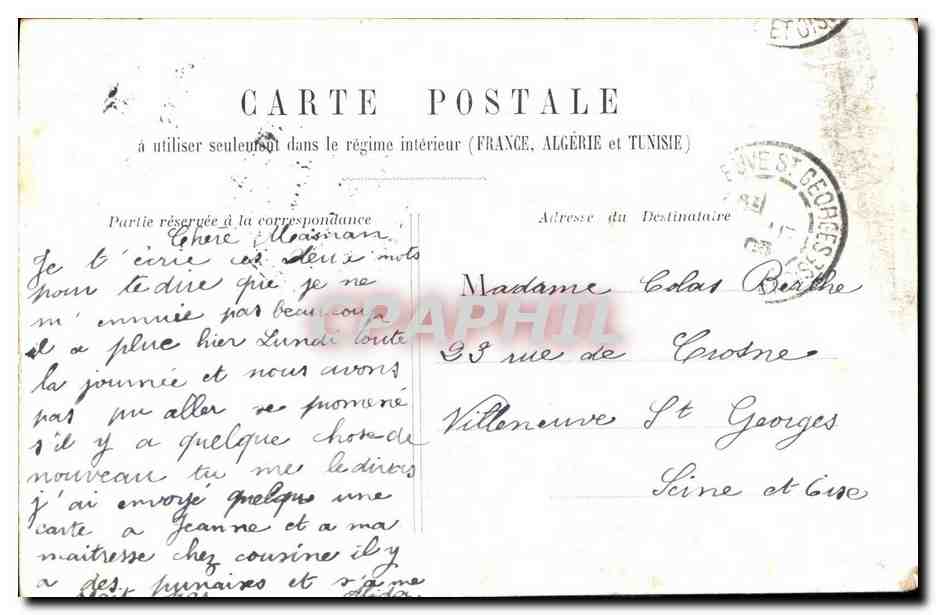 ET OISE
CARTE POSTALE
à utiliser seulement dans le régime intérieur (FRANCE, ALGÉRIE et TUNISIE)
Partie réservée à la correspondance
Chère Maman
Je t'écrie ces deux mots
pour te dire que je ne
m'ennuie pas beaucoup
il a pluc hier Lundi toute
la journée et nous avons
pas pu aller se promené
s'il y a quelque chose de
nouveau tu me le dirais
j'ai envoyé quelque une
carte a Jeanne et a ma
maitresse chez cousine il y
a des punaises et s'a me
Adresse du Destinataire
Madame Colas Berthe
23 rue de Crosne
Villeneuve St Georges
Seine et Oise
EUVE ST GEORGES
CPAPHIL